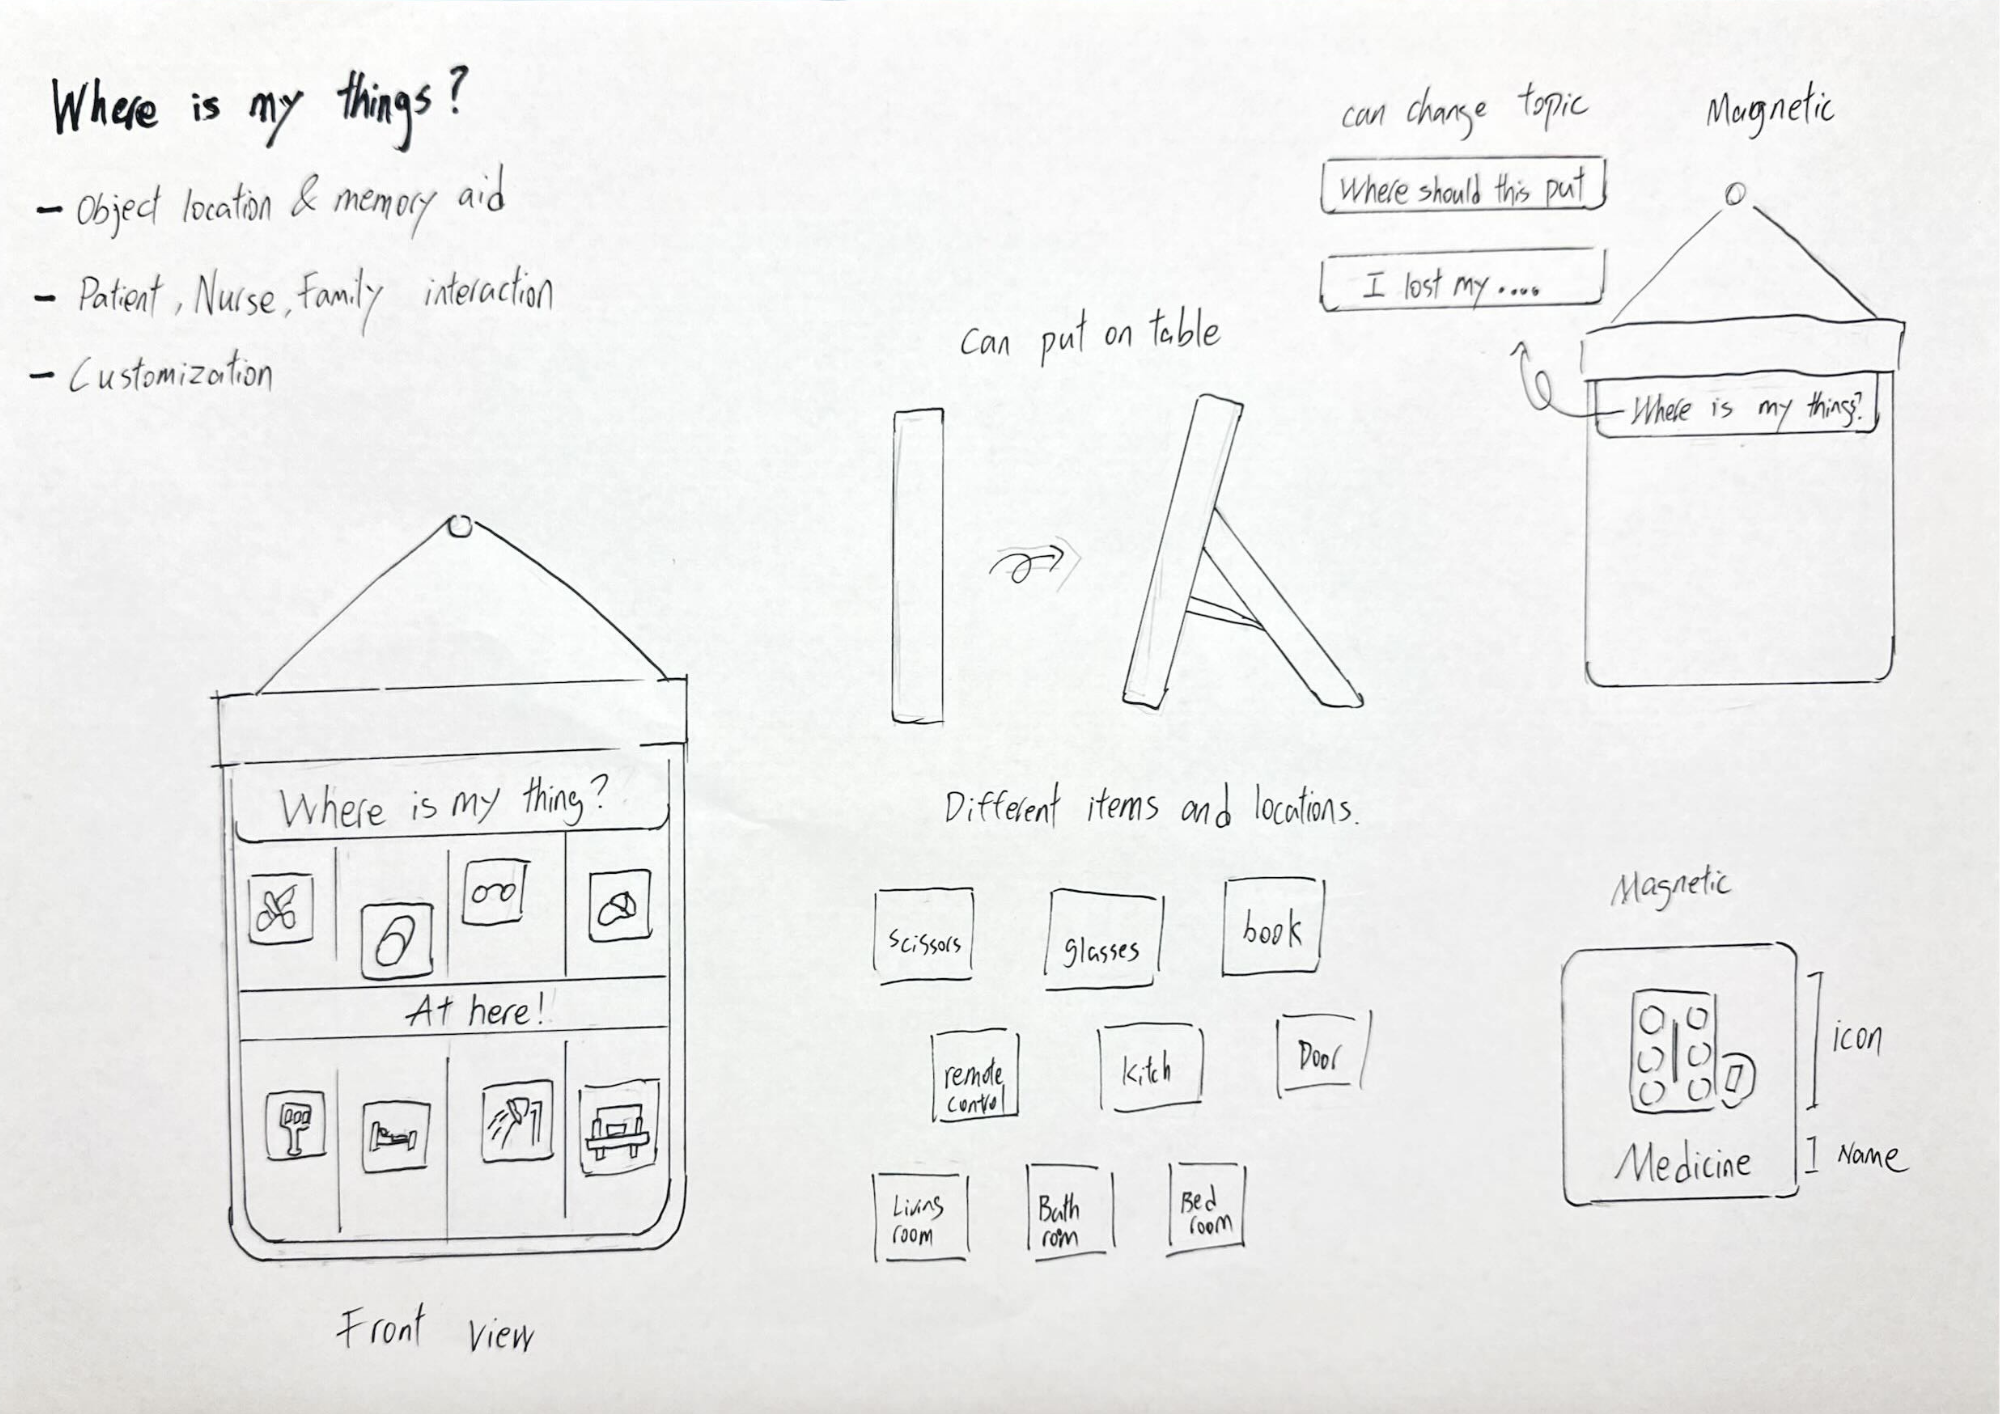 Where is my things?
- Object location & memory aid
- Patient, Nurse, Family interaction
- Customization
can change topic
Where should this put
I lost my ....
Magnetic
Where is my things?
Can put on table
Where is my thing?
At here!
Front view
Different items and locations.
scissors
glasses
book
remote
control
kitch
Door
Living
room
Bath
room
Bed
room
Magnetic
icon
Medicine
Name